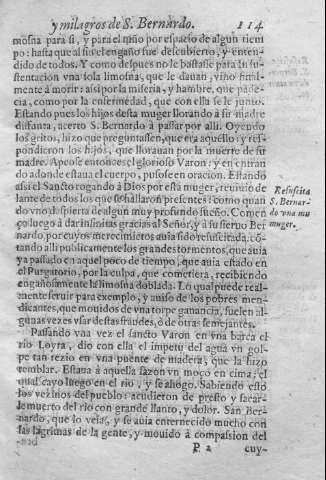 y milagros de S. Bernardo. 114
mosna para si, y para el niño por espacio de algun tiem
po: hasta que al fin el engaño fue descubierto, y enten-
dido de todos. Y como despues no le bastasse para su su-
stentacion vna sola limosna, que le dauan, vino final-
mente à morir: assi por la miseria, y hambre, que pade-
cia, como por la enfermedad, que con ella se le junto.
Estando pues los hijos desta muger llorando à su madre
difunta, acerto S. Bernardo à passar por alli. Oyendo
los gritos, hizo que preguntassen, que era aquello: y res-
pondieron los hijos, que llorauan por la muerte de su
madre. Apeose entonces el glorioso Varon: y en entran
do adonde estaua el cuerpo, pusose en oracion. Estando
assi el Sancto rogando à Dios por esta muger, reuiuio de
lante de todos los que se hallaron presentes: como quan
do vno despierta de algun muy profundo sueño. Comen
ço luego à dar infinitas gracias al Señor, y à su sieruo Ber
nardo por cuyos merecimientos auia sido resuscitada, cõ-
tando alli publicamente los grandes tormentos, que auia
ya passado en aquel poco de tiempo, que auia estado en
el Purgatorio, por la culpa, que cometiera, recibiendo
engañosamente la limosna doblada. Lo qual puede real-
mente seruir para exemplo, y auiso de los pobres men-
dicantes, que mouidos de vna torpe ganancia, suelen al-
gunas vezes vsar destas fraudes, ò de otras semejantes.
Resuscita
S. Bernar-
do vna mu
muger.
Passando vna vez el sancto Varon en vna barca el
rio Loyra, dio con ella el impetu del agua vn gol-
pe tan rezio en vna puente de madera, que la hizo
temblar. Estaua à aquella sazon vn moço en cima, el
qual cayo luego en el rio, y se ahogo. Sabiendo esto
los vezinos del pueblo: acudieron de presto y sacar-
le muerto del rio con grande llanto, y dolor. San Ber-
nardo, que lo veia, y se auia enternecido mucho con
las lagrimas de la gente, y mouido à compassion del
P 2 cuy-